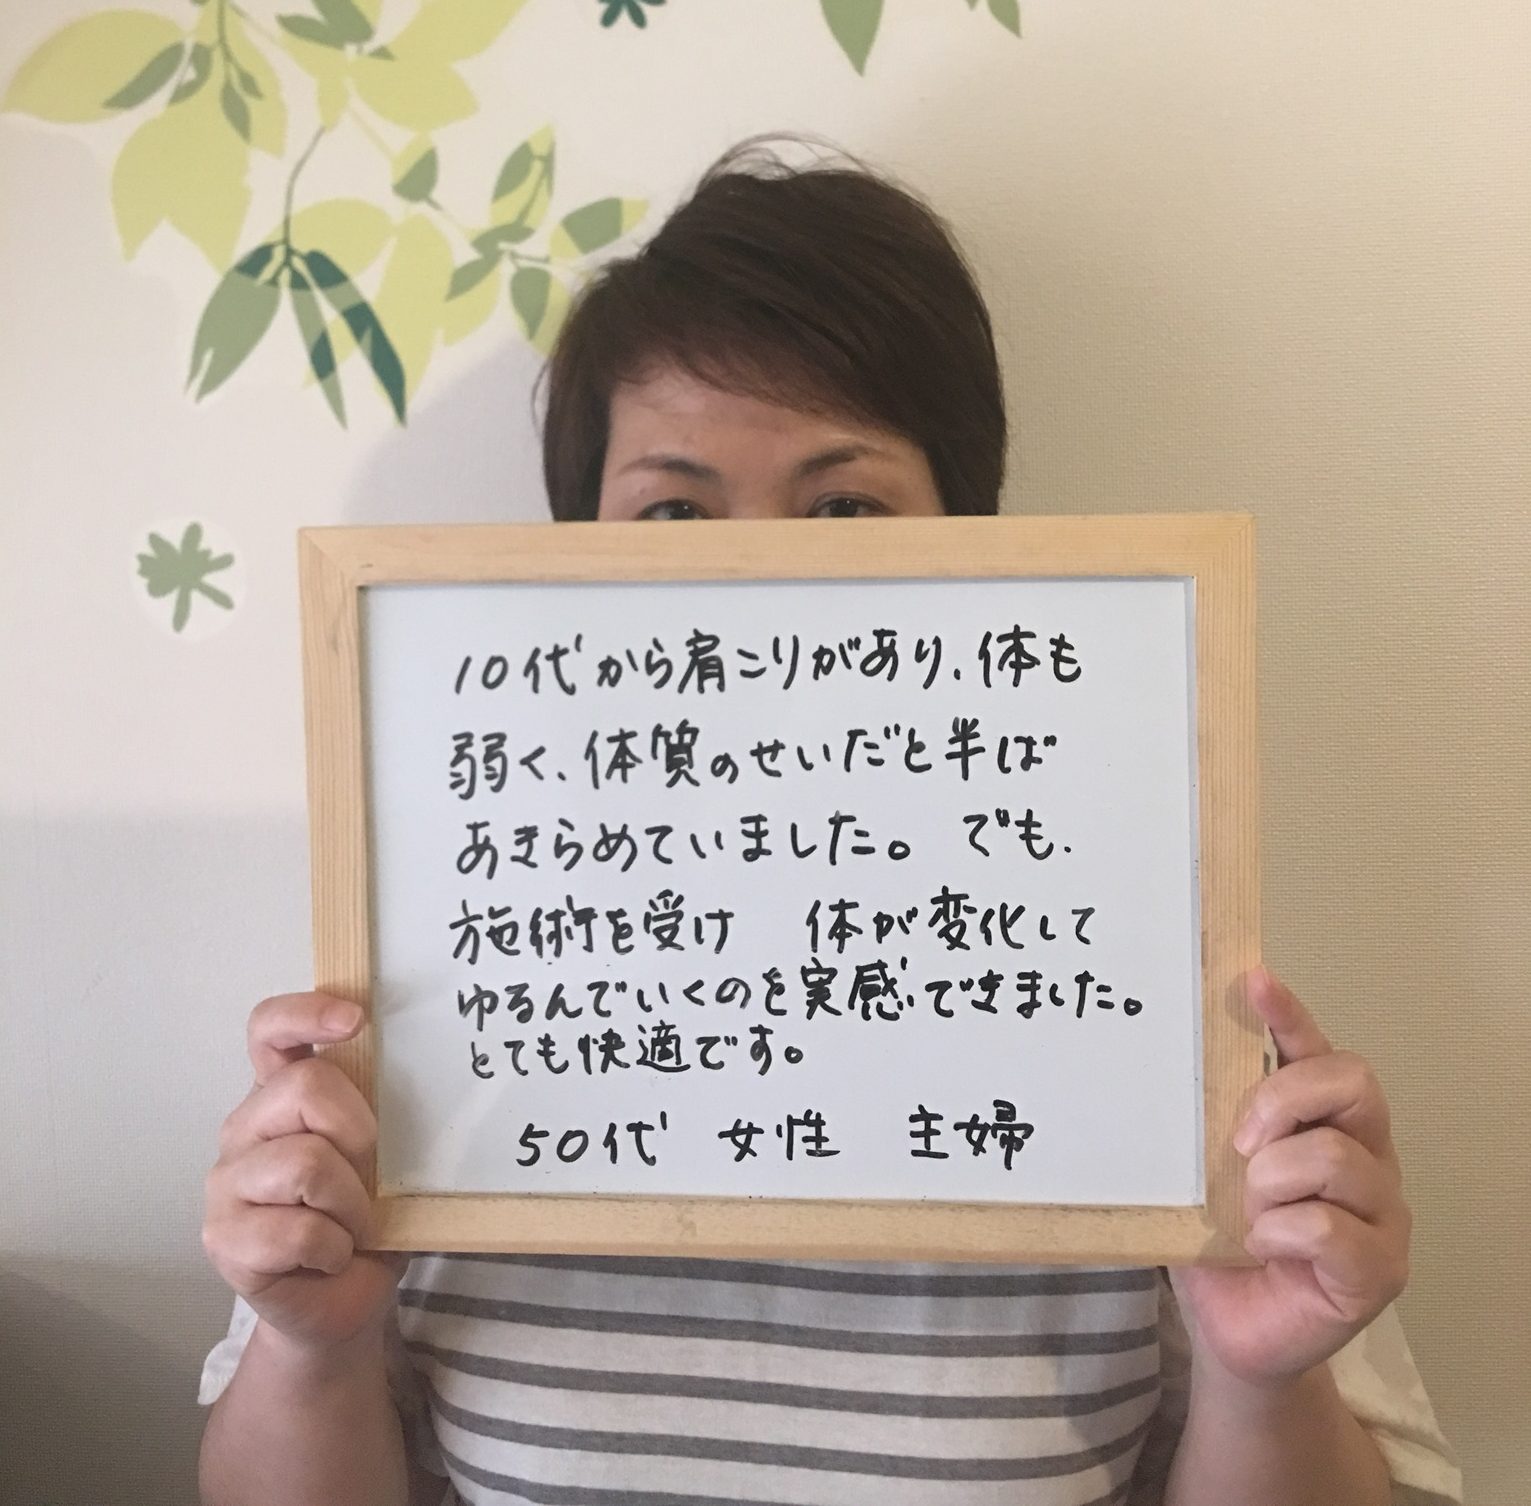 10代から肩こりがあり、体も
弱く、体質のせいだと半ば
あきらめていました。 でも、
施術を受け 体が変化して
ゆるんでいくのを実感できました。
とても快適です。
50代 女性 主婦